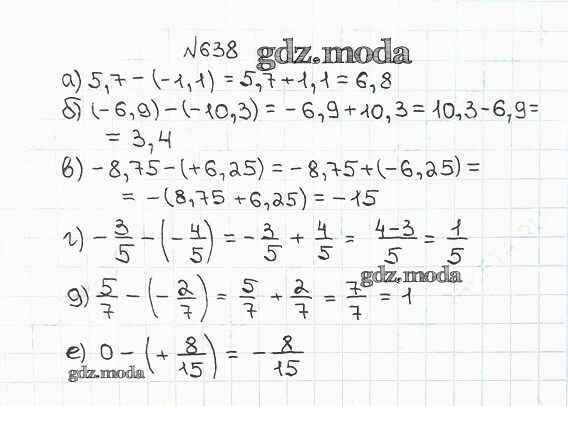 №638 gdz.moda
а) 5,7 - (-1,1) = 5,7 + 1,1 = 6,8
б) (-6,9) - (-10,3) = -6,9 + 10,3 = 10,3 - 6,9 =
= 3,4
в) -8,75 - (+6,25) = -8,75 + (-6,25) =
= -(8,75 + 6,25) = -15
г) -3/5 - (-4/5) = -3/5 + 4/5 = (4-3)/5 = 1/5
gdz.moda
д) 5/7 - (-2/7) = 5/7 + 2/7 = 7/7 = 1
е) 0 - (+8/15) = -8/15
gdz.moda